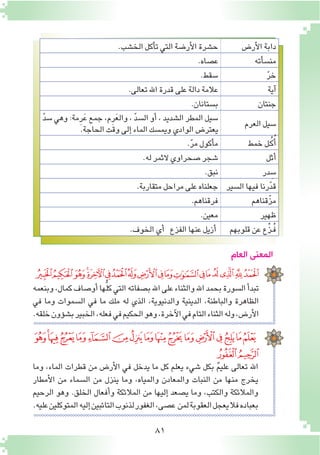 دابة الأرض حشرة الأرضة التي تأكل الخشب.
منسأته عصاه.
خرّ سقط.
آية علامة دالة على قدرة الله تعالى.
جنتان بستانان.
سيل العرم سيل المطر الشديد ، أو السدّ ، والعَرِم، جمع عَرِمة: وهي سدّ
يعترض الوادي ويمسك الماء إلى وقت الحاجة.
أُكُل خمط مأكول مرّ.
أثل شجر صحراوي لاثمر له.
سدر نبق.
قدّرنا فيها السير جعلناه على مراحل متقاربة.
مزّقناهم فرقناهم.
ظهير معين.
فُزِّع عن قلوبهم أزيل عنها الفزع أي الخوف.
المعنى العام
الْحَمْدُ لِلَّهِ الَّذِي لَهُ مَا فِي السَّمَاوَاتِ وَمَا فِي الْأَرْضِ وَلَهُ الْحَمْدُ فِي الْآخِرَةِ وَهُوَ الْحَكِيمُ الْخَبِيرُ
تبدأ السورة بحمد الله والثناء على الله بصفاته التي كلّها أوصاف كمال، وبنعمه
الظاهرة والباطنة، الدينية والدنيوية، الذي له ملك ما في السموات وما في
الأرض، وله الثناء التام في الآخرة، وهو الحكيم في فعله، الخبير بشؤون خلقه.
يَعْلَمُ مَا يَلِجُ فِي الْأَرْضِ وَمَا يَخْرُجُ مِنْهَا وَمَا يَنزِلُ مِنَ السَّمَاءِ وَمَا يَعْرُجُ فِيهَا وَهُوَ
الرَّحِيمُ الْغَفُورُ
الله تعالى عليمٌ بكل شيء يعلم كل ما يدخل في الأرض من قطرات الماء، وما
يخرج منها من النبات والمعادن والمياه، وما ينزل من السماء من الأمطار
والملائكة والكتب، وما يصعد إليها من الملائكة وأفعال الخلق. وهو الرحيم
بعباده فلا يعجل العقوبة لمن عصى، الغفور لذنوب التائبين إليه المتوكلين عليه.
٨١